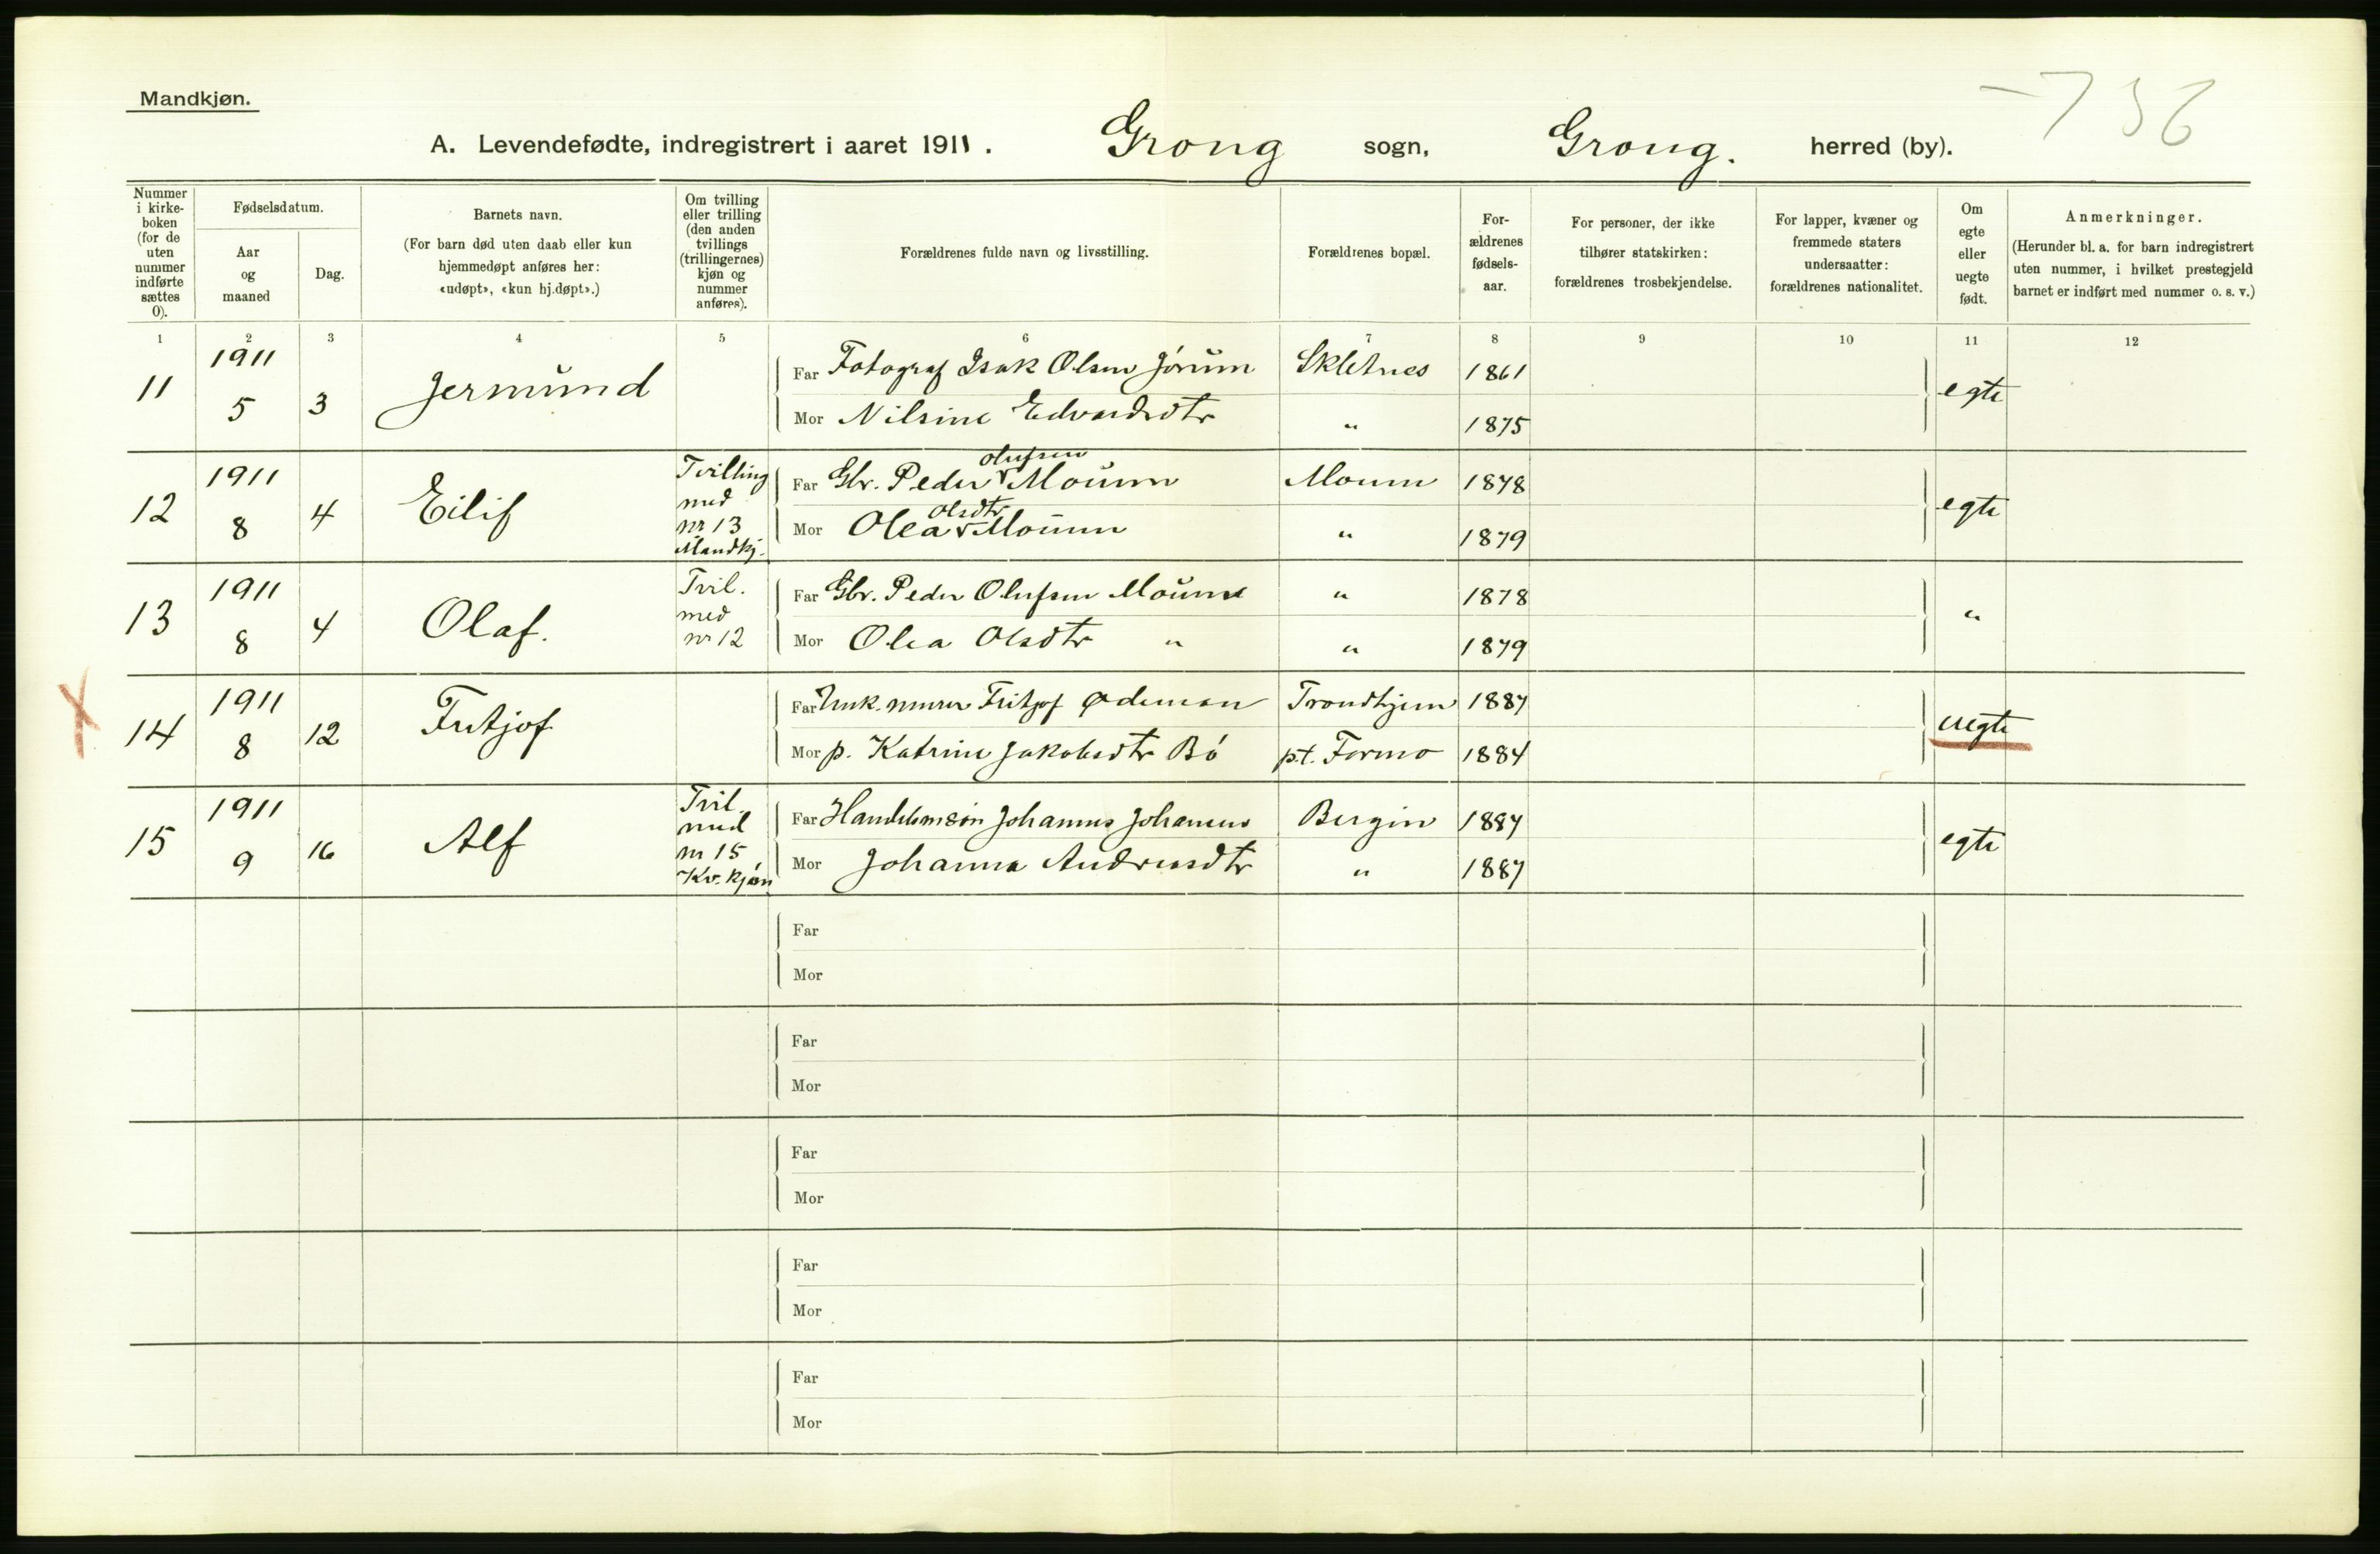 Mandkjøn.
736
A. Levendefødte, indregistrert i aaret 1911. Grong sogn, Grong. herred (by).
Nummer i kirke-boken (for de uten nummer indførte sættes 0).
Fødselsdatum.
Aar og maaned
Dag.
Barnets navn.
(For barn død uten daab eller kun hjemmedøpt anføres her: «udøpt», «kun hj.døpt».)
Om tvilling eller trilling (den anden tvillings (trillingernes) kjøn og nummer anføres).
Forældrenes fulde navn og livsstilling.
Forældrenes bopæl.
For-ældrenes fødsels-aar.
For personer, der ikke tilhører statskirken: forældrenes trosbekjendelse.
For lapper, kvæner og fremmede staters undersaatter: forældrenes nationalitet.
Om egte eller uegte født.
Anmerkninger.
(Herunder bl. a. for barn indregistrert uten nummer, i hvilket prestegjeld barnet er indført med nummer o. s. v.)
1 2 3 4 5 6 7 8 9 10 11 12
11 1911 5 3 Jermund
Far Fotograf Isak Olsen Jørum Skletnes 1861 egte
Mor Nilsine Edvardsdtr " 1875
12 1911 8 4 Eilif Tvilling med nr 13 Mandkj.
Far Gbr. Peder Olufsen Moum Moum 1878 egte
Mor Olea Olsdtr Moum " 1879
13 1911 8 4 Olaf. Tvil. med nr 12
Far Gbr. Peder Olufsen Moum " 1878 "
Mor Olea Olsdtr " " 1879
14 1911 8 12 Fritjof
Far Unk. murer Fritjof Ødeman Trondhjem 1887 uegte
Mor p. Katrine Jakobsdtr Bö p.t. Formo 1884
15 1911 9 16 Alf Tvil. med nr 15 Kv. kjøn
Far Handelsm Johannes Johansen Bergin 1887 egte
Mor Johanna Andreasdtr " 1887
Far
Mor
Far
Mor
Far
Mor
Far
Mor
Far
Mor